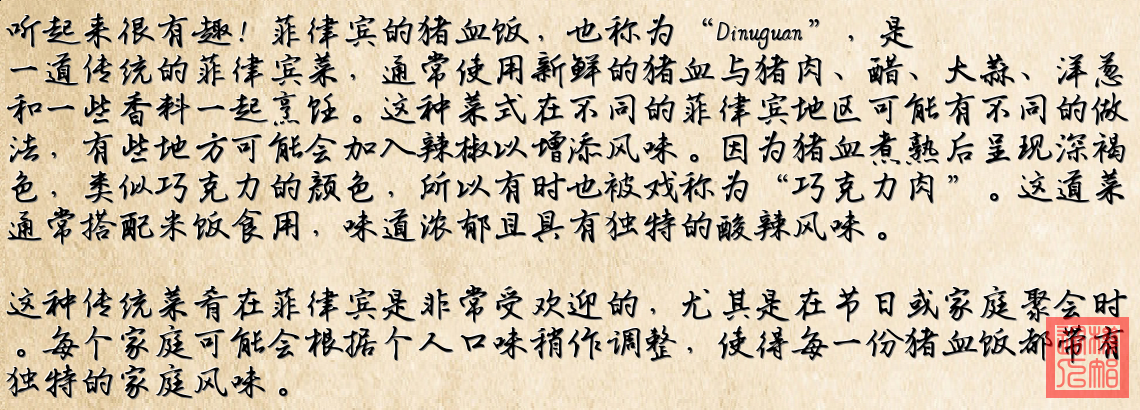 听起来很有趣！菲律宾的猪血饭，也称为“Dinuguan”，是
一道传统的菲律宾菜，通常使用新鲜的猪血与猪肉、醋、大蒜、洋葱
和一些香料一起烹饪。这种菜式在不同的菲律宾地区可能有不同的做
法，有些地方可能会加入辣椒以增添风味。因为猪血煮熟后呈现深褐
色，类似巧克力的颜色，所以有时也被戏称为“巧克力肉”。这道菜
通常搭配米饭食用，味道浓郁且具有独特的酸辣风味。
这种传统菜肴在菲律宾是非常受欢迎的，尤其是在节日或家庭聚会时
。每个家庭可能会根据个人口味稍作调整，使得每一份猪血饭都带有
独特的家庭风味。